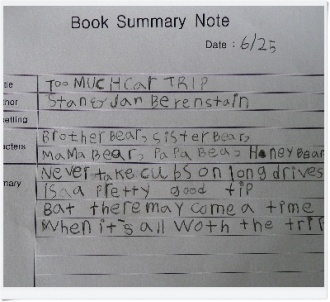 Book Summary Note
Date : 6/25
Too MUCH Car TRIP
Stan & Jan Berenstain
Brother Bear, Sister Bear,
MaMa Bear, PaPa Bear, Honey Bear
Never take cubs on long drives
Is a a Pretty good tip
Bat there may come a time
When it's all Woth the trip